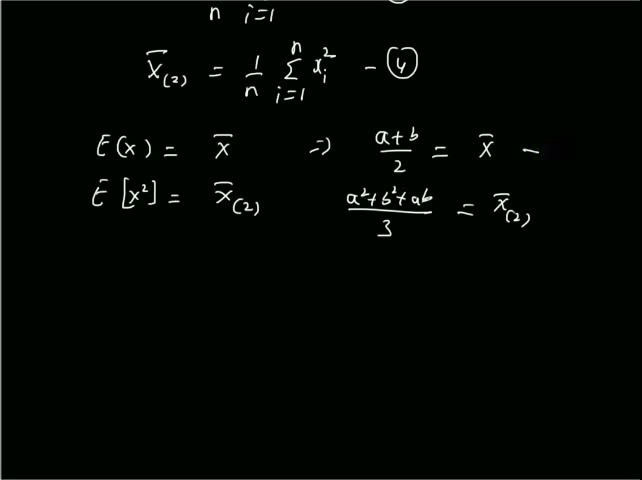 n i=1
x̄₍₂₎ = 1/n ∑ᵢ₌₁ⁿ xᵢ² - ④
E(x) = x̄ ⇒ a+b/2 = x̄ -
E[x²] = x̄₍₂₎ a²+b²+ab/3 = x̄₍₂₎